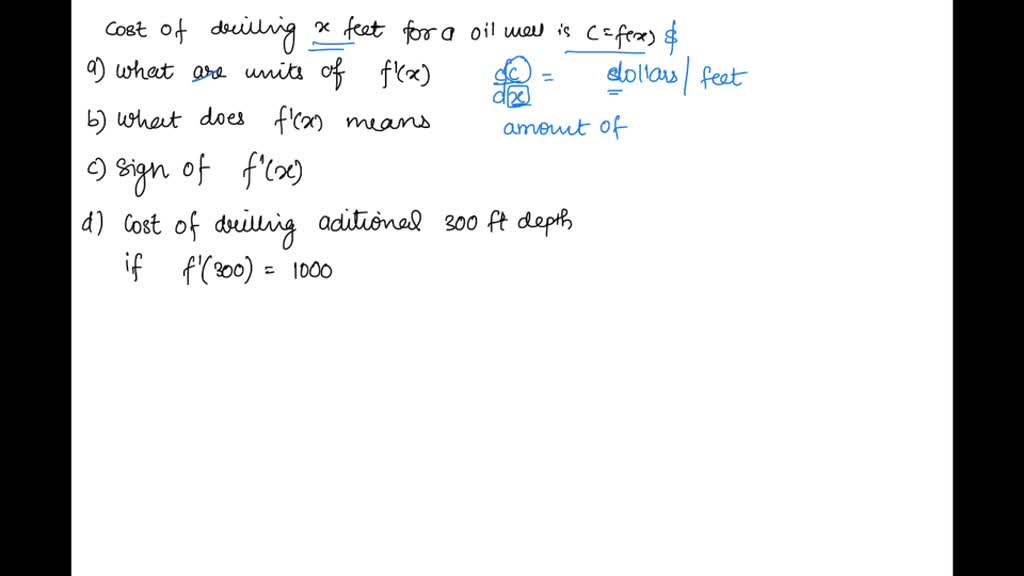 Cost of drilling x feet for a oil well is C=f(x) $
a) what are units of f'(x) dc/dx = dollars/feet
b) what does f'(x) means amount of
c) Sign of f'(x)
d) Cost of drilling aditional 300 ft depth
if f'(300) = 1000